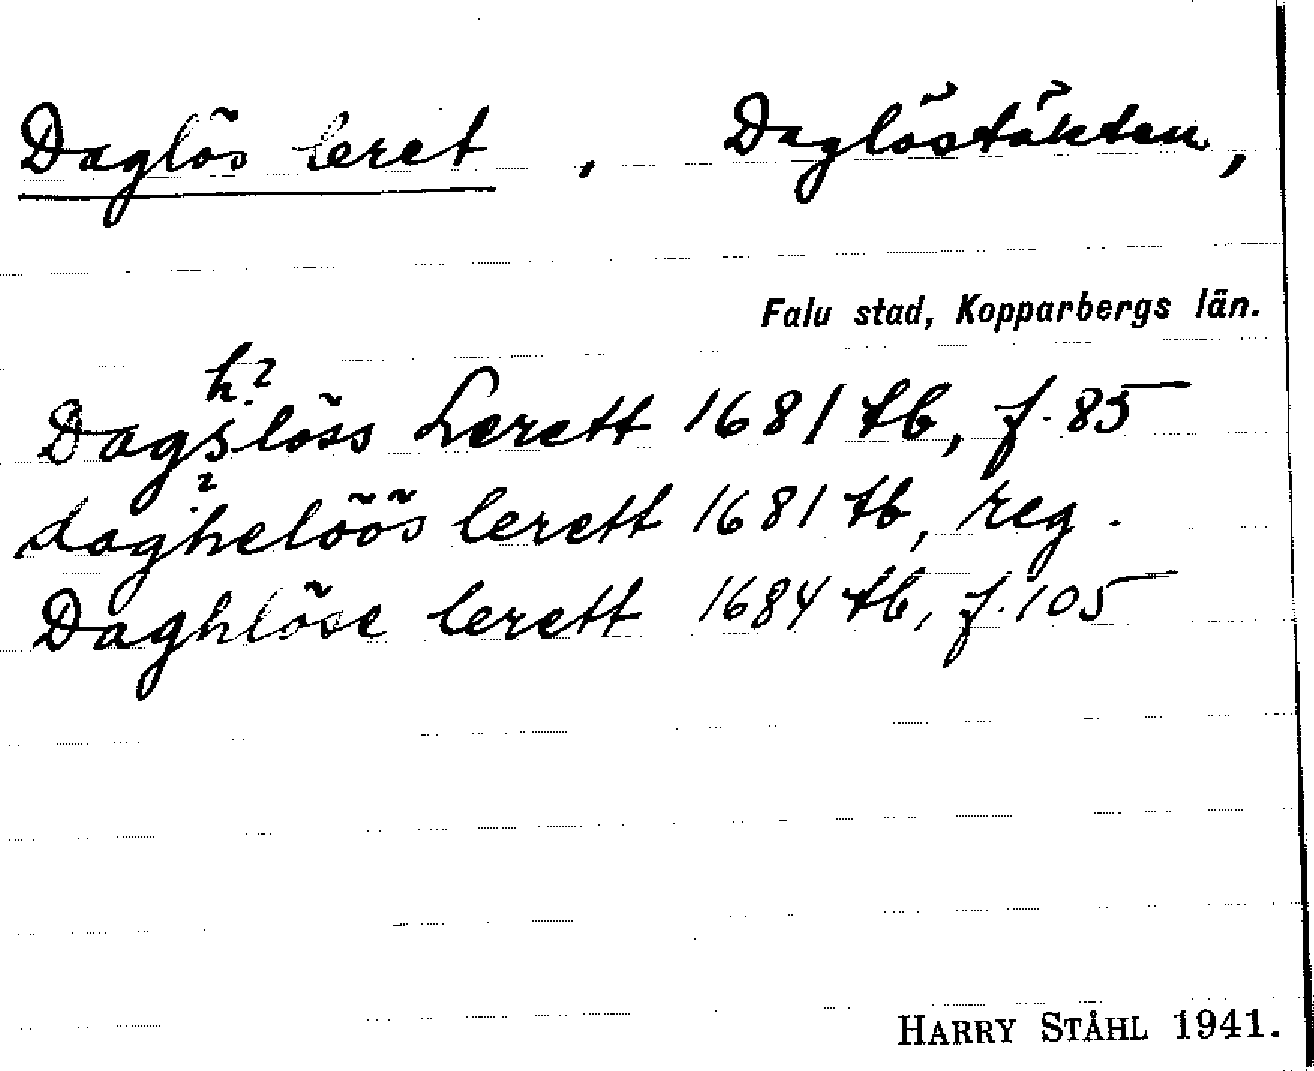 Daglös leret, Daglöstäkten,
Falu stad, Kopparbergs län.
h?
Dagslöss Lerett 1681 tb, f. 85
?
daghelöös lerett 1681 tb, reg.
Daghlöse lerett 1684 tb, f. 105
HARRY STÅHL 1941.